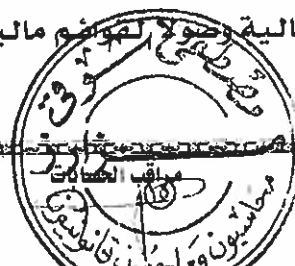 الية وصولاً لقوائم مالي
مصطفى شوقي
مراقب الحسابات
محاسبون ومراجعون قانونيون